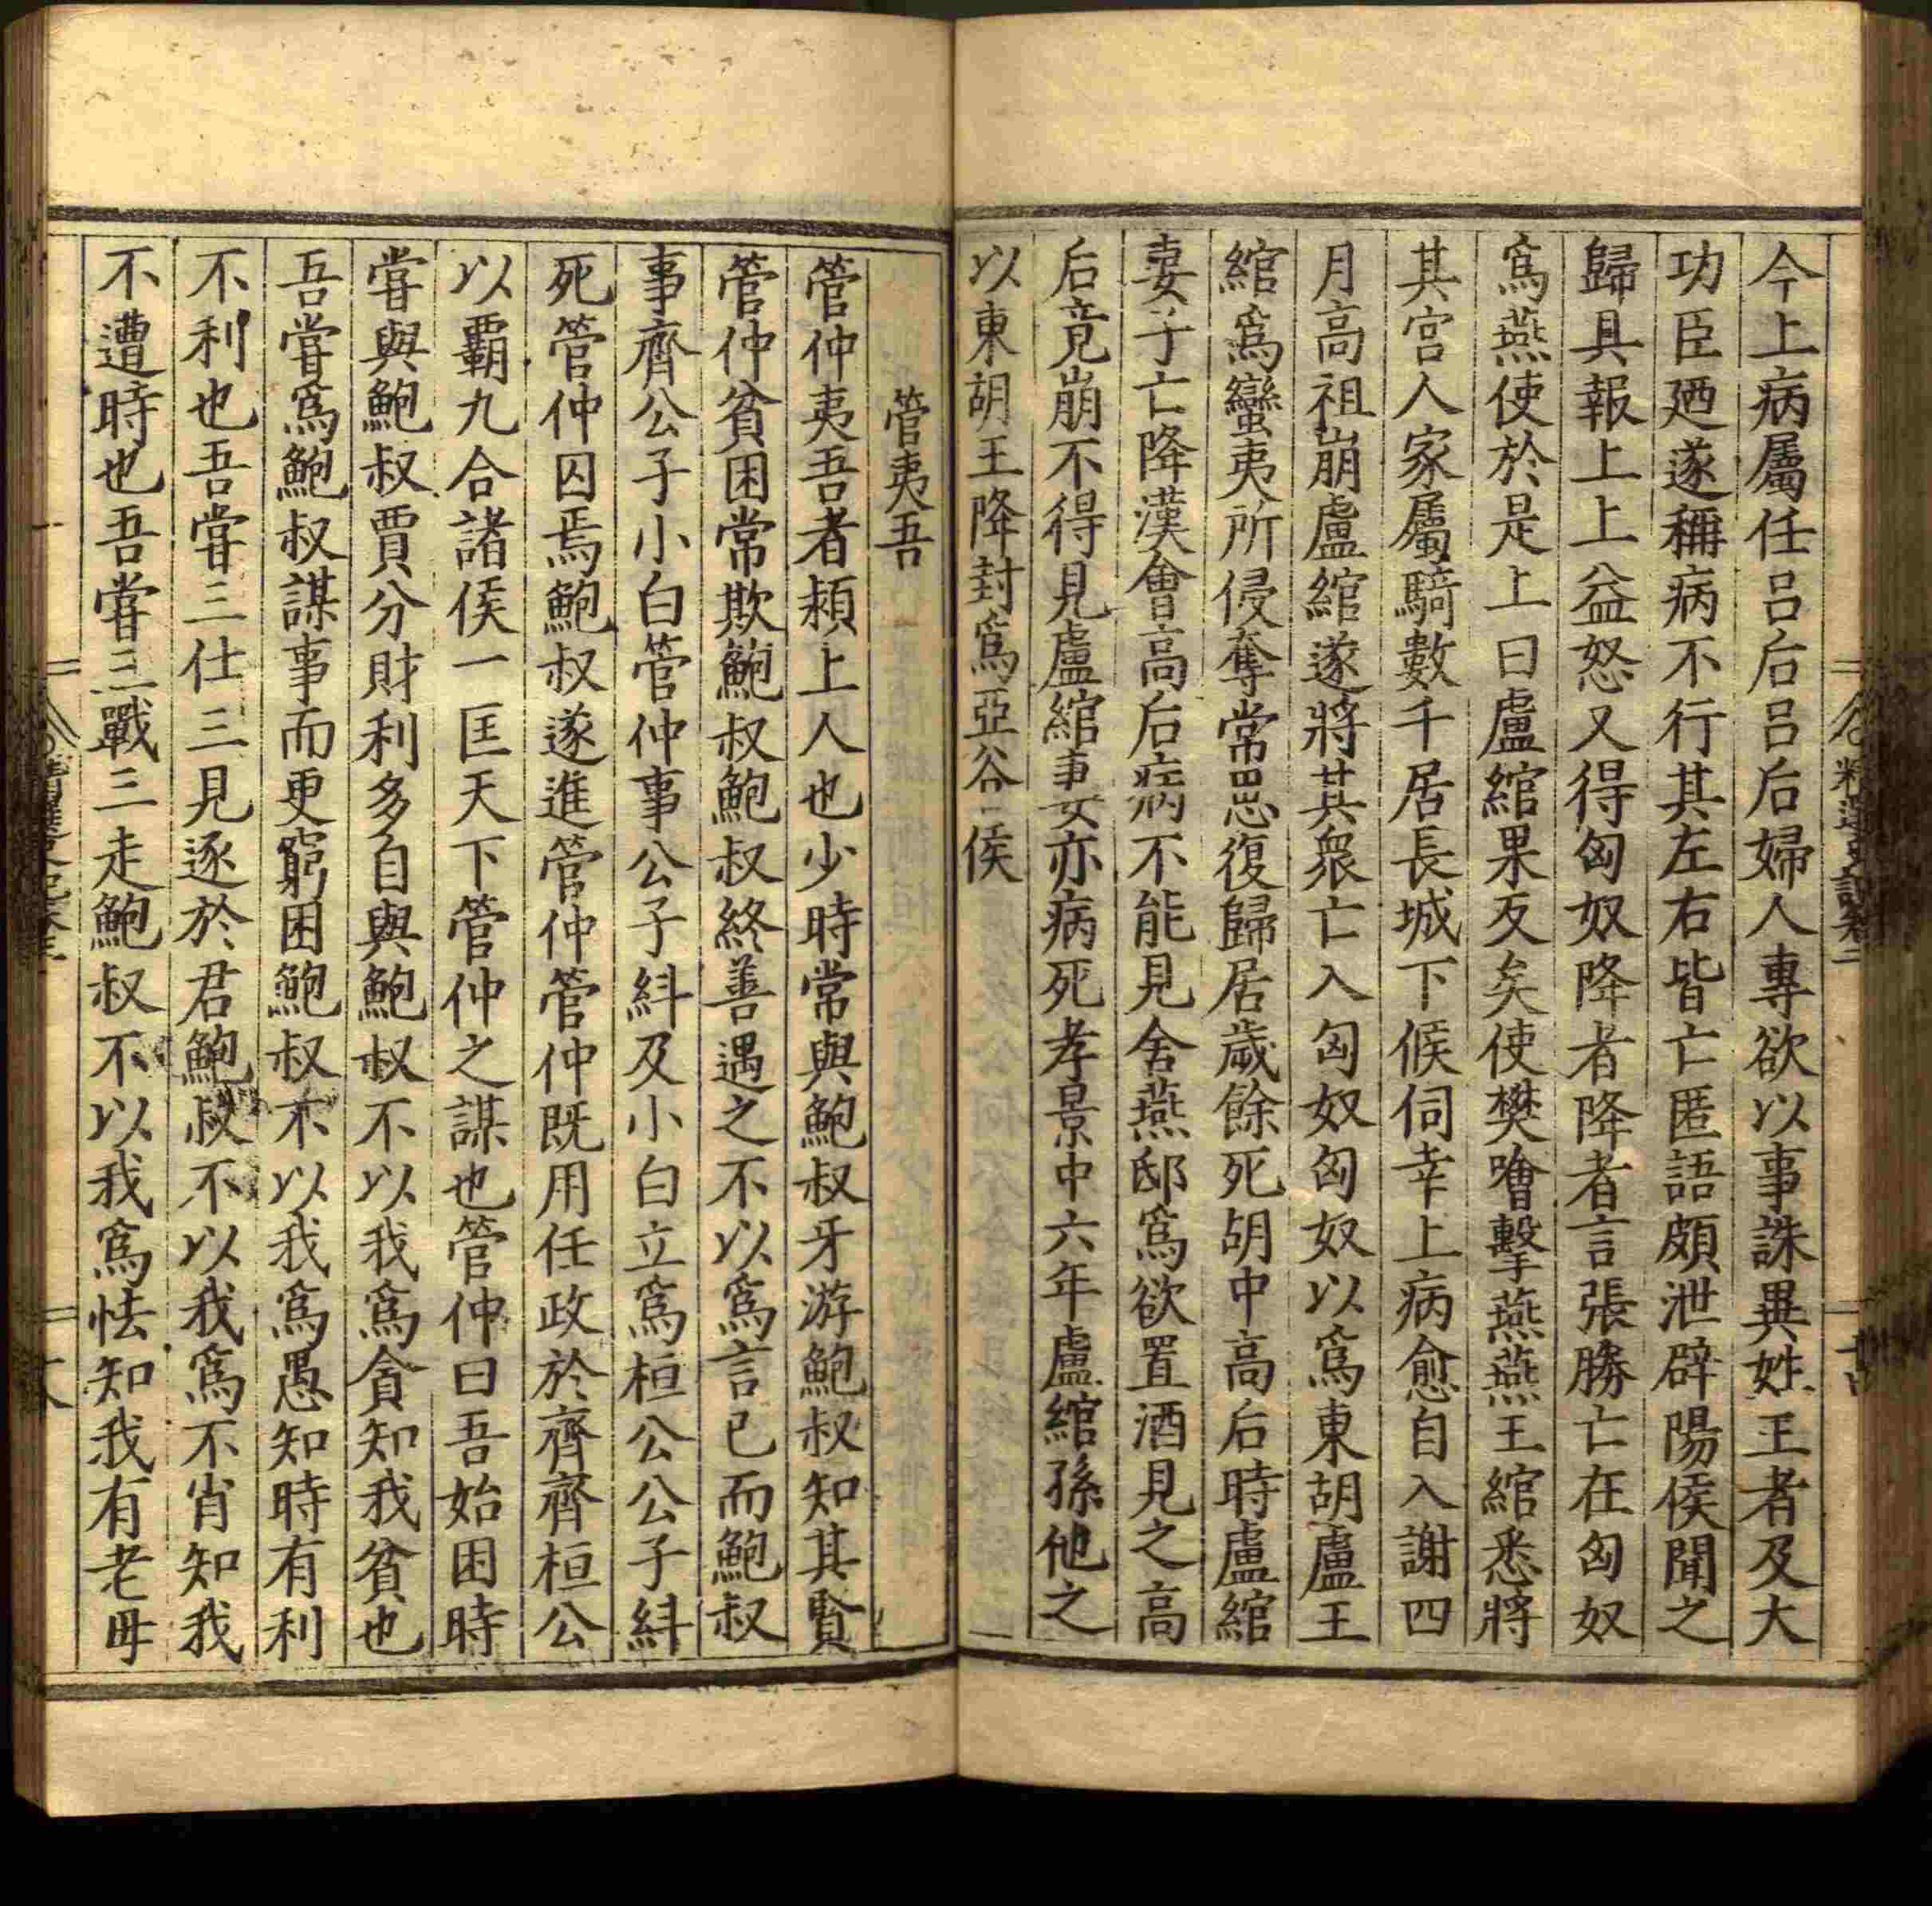 今上病屬任呂后呂后婦人專欲以事誅異姓王者及大
功臣廼遂稱病不行其左右皆亡匿語頗泄辟陽侯聞之
歸具報上上益怒又得匈奴降者降者言張勝亡在匈奴
為燕使於是上曰盧綰果反矣使樊噲擊燕燕王綰悉將
其宮人家屬騎數千居長城下候伺幸上病愈自入謝四
月高祖崩盧綰遂將其衆亡入匈奴匈奴以為東胡盧王
綰為蠻夷所侵奪常思復歸居歲餘死胡中高后時盧綰
妻子亡降漢會高后病不能見舍燕邸為欲置酒見之高
后竟崩不得見盧綰妻亦病死孝景中六年盧綰孫他之
以東胡王降封為亞谷侯
管夷吾
管仲夷吾者頴上人也少時常與鮑叔牙游鮑叔知其賢
管仲貧困常欺鮑叔鮑叔終善遇之不以為言已而鮑叔
事齊公子小白管仲事公子糾及小白立為桓公公子糾
死管仲囚焉鮑叔遂進管仲管仲既用任政於齊齊桓公
以霸九合諸侯一匡天下管仲之謀也管仲曰吾始困時
嘗與鮑叔賈分財利多自與鮑叔不以我為貪知我貧也
吾嘗為鮑叔謀事而更窮困鮑叔不以我為愚知時有利
不利也吾嘗三仕三見逐於君鮑叔不以我為不肖知我
不遭時也吾嘗三戰三走鮑叔不以我為怯知我有老母